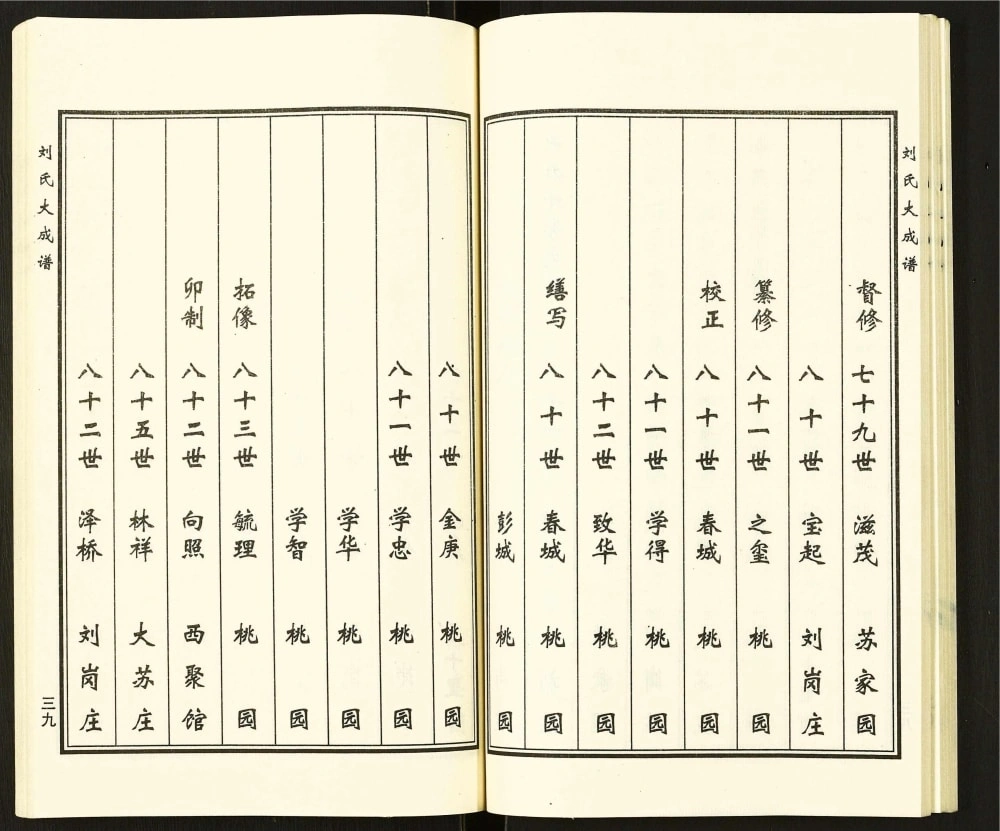 刘氏大成谱
督修 七十九世 滋茂 苏家园
八十世 宝起 刘岗庄
纂修 八十一世 之玺 桃园
校正 八十世 春城 桃园
八十一世 学得 桃园
八十二世 致华 桃园
缮写 八十世 春城 桃园
彭城 桃园
八十世 金庚 桃园
八十一世 学忠 桃园
学华 桃园
学智 桃园
拓像 八十三世 毓理 桃园
卯制 八十二世 向照 西聚馆
八十五世 林祥 大苏庄
八十二世 泽桥 刘岗庄
刘氏大成谱
三九